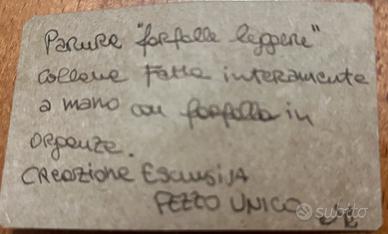 PARURE "farfalle leggere"
Collana FATTA interamente
a mano con farfalla in
ORGANZA.
CREAZIONE ESCLUSIVA
PEZZO UNICO
subito